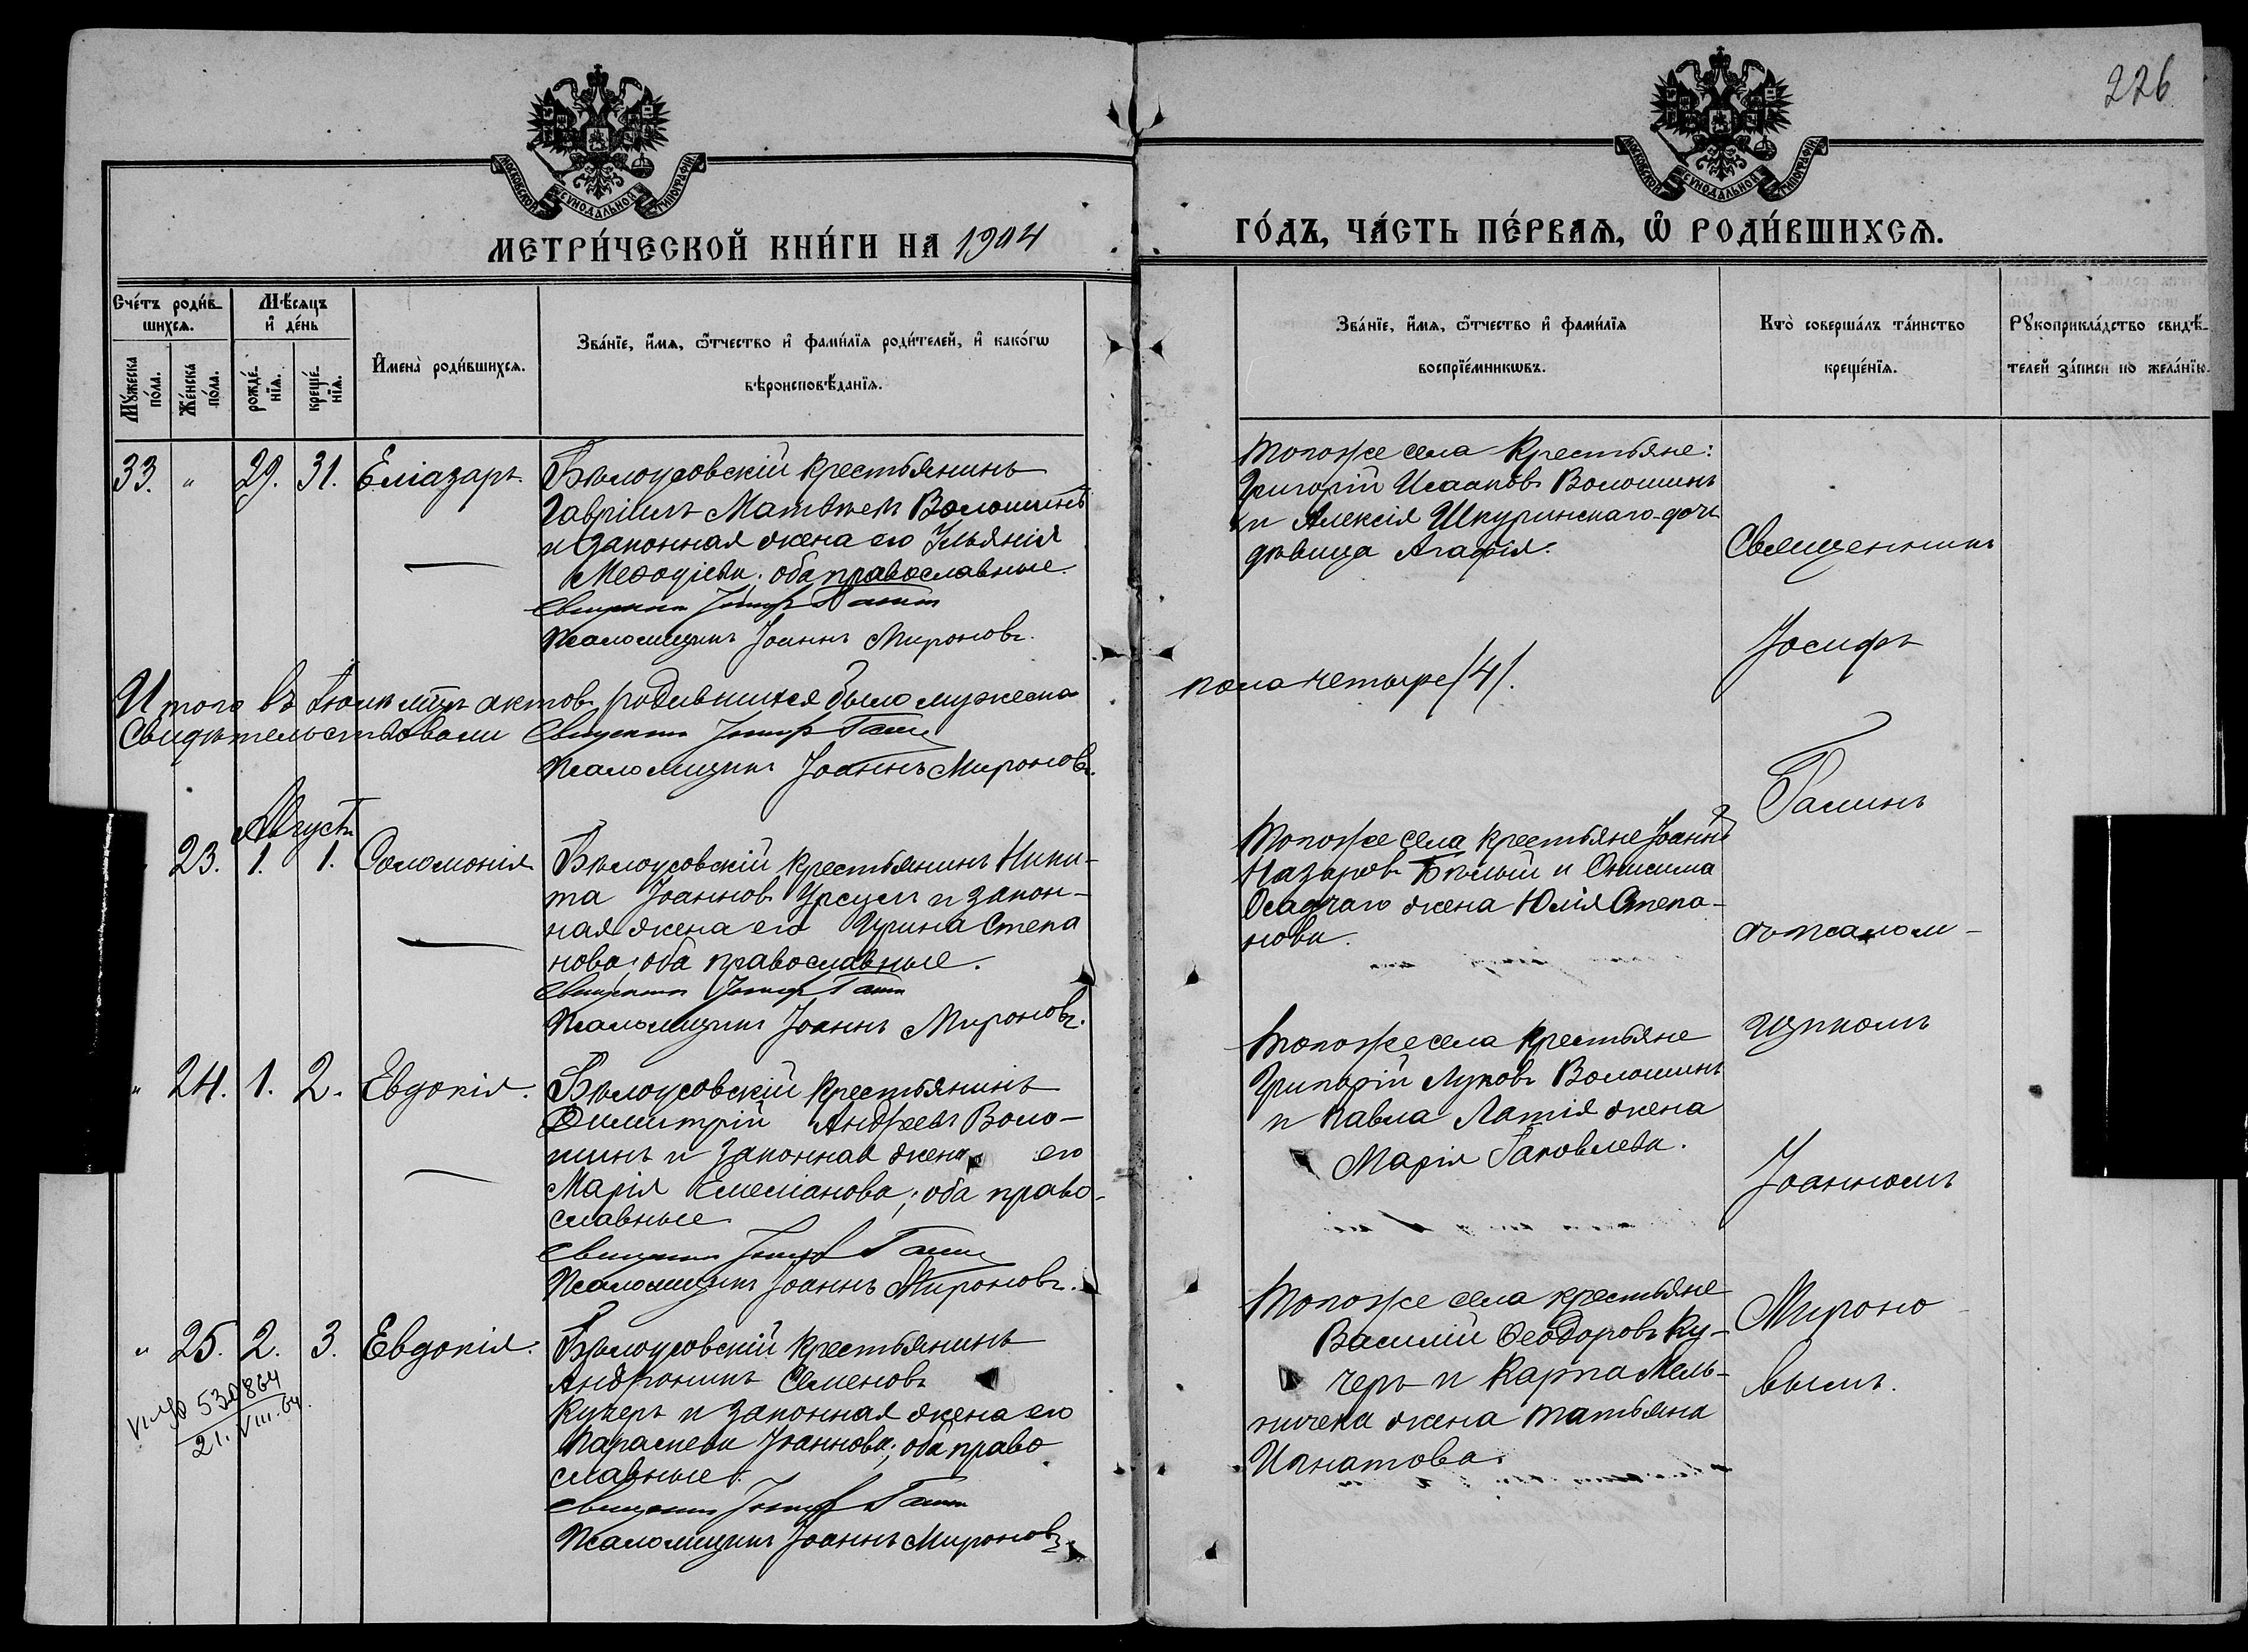 226
МОСКОВСКОЙ СѴНОДАЛЬНОЙ ТИПОГРАФІИ
МОСКОВСКОЙ СѴНОДАЛЬНОЙ ТИПОГРАФІИ
МЕТРИ́ЧЕСКОЙ КНИ́ГИ НА 1904
ГО́ДЪ, ЧА́СТЬ ПЕ́РВАѦ, Ѡ҆ РОДИ́ВШИХСѦ.
Сче́тъ роди́в-
шихсѧ.
Мꙋ́жеска
по́ла.
Же́нска
по́ла.
Мѣ́сѧцъ
и҆ де́нь
рожде́-
нїѧ.
креще́-
нїѧ.
И҆мена̀ роди́вшихсѧ.
Зва́нїе, и҆́мѧ, ѻ҆́тчество и҆ фами́лїѧ роди́телей, и҆ како́гѡ
вѣроисповѣ́данїѧ.
Зва́нїе, и҆́мѧ, ѻ҆́тчество и҆ фами́лїѧ
воспрїе́мникѡвъ.
Кто̀ соверша́лъ та́инство
креще́нїѧ.
Рꙋкоприкла́дство свидѣ́-
телей за́писи по жела́нїю.
33. " 29. 31. Еліазаръ.
Бѣлоусовскій крестьянинъ
Гавріилъ Матвѣевъ Волошинъ
и законная жена его Ульянія
Меѳодіева; оба православные.
Священникъ Іосифъ Галинъ
Псаломщикъ Іоаннъ Мироновъ.
Тогоже села крестьяне:
Григорій Исааковъ Волошинъ
и Алексія Шкуринскаго дочь
дѣвица Агафія.
Итого въ Іюлѣ мцѣ актовъ родившихся было мужеска
пола четыре /4/.
Свидѣтельствовали Священникъ Іосифъ Галинъ
Псаломщикъ Іоаннъ Мироновъ.
Августъ
" 23. 1. 1. Соломонія
Бѣлоусовскій крестьянинъ Ники-
та Іоанновъ Урсулъ и закон-
ная жена его Ирина Степа
нова; оба православные.
Священникъ Іосифъ Галинъ
Псаломщикъ Іоаннъ Мироновъ.
Тогоже села крестьяне Іоаннъ
Назаровъ Бѣлый и Онисима
Осадчаго жена Юлія Степа-
нова.
" 24. 1. 2. Евдокія.
Бѣлоусовскій крестьянинъ
Димитрій Андреевъ Воло-
шинъ и законная жена его
Марія Емеліанова; оба право-
славные
Священникъ Іосифъ Галинъ
Псаломщикъ Іоаннъ Мироновъ.
Тогоже села крестьяне
Григорій Луковъ Волошинъ
и Павла Латія жена
Марія Іаковлева.
" 25. 2. 3. Евдокія.
530864
21.VIII.64.
Бѣлоусовскій крестьянинъ
Андроникъ Семеновъ
Кучеръ и законная жена его
Параскева Іоаннова; оба право
славные.
Священникъ Іосифъ Галинъ
Псаломщикъ Іоаннъ Мироновъ.
Тогоже села крестьяне
Василій Ѳеодоровъ Ку-
черъ и Карпа Мель-
ничека жена Татьяна
Игнатова.
Священникъ
Іосифъ
Галинъ
съ псалом-
щикомъ
Іоанномъ
Мироно
вымъ.